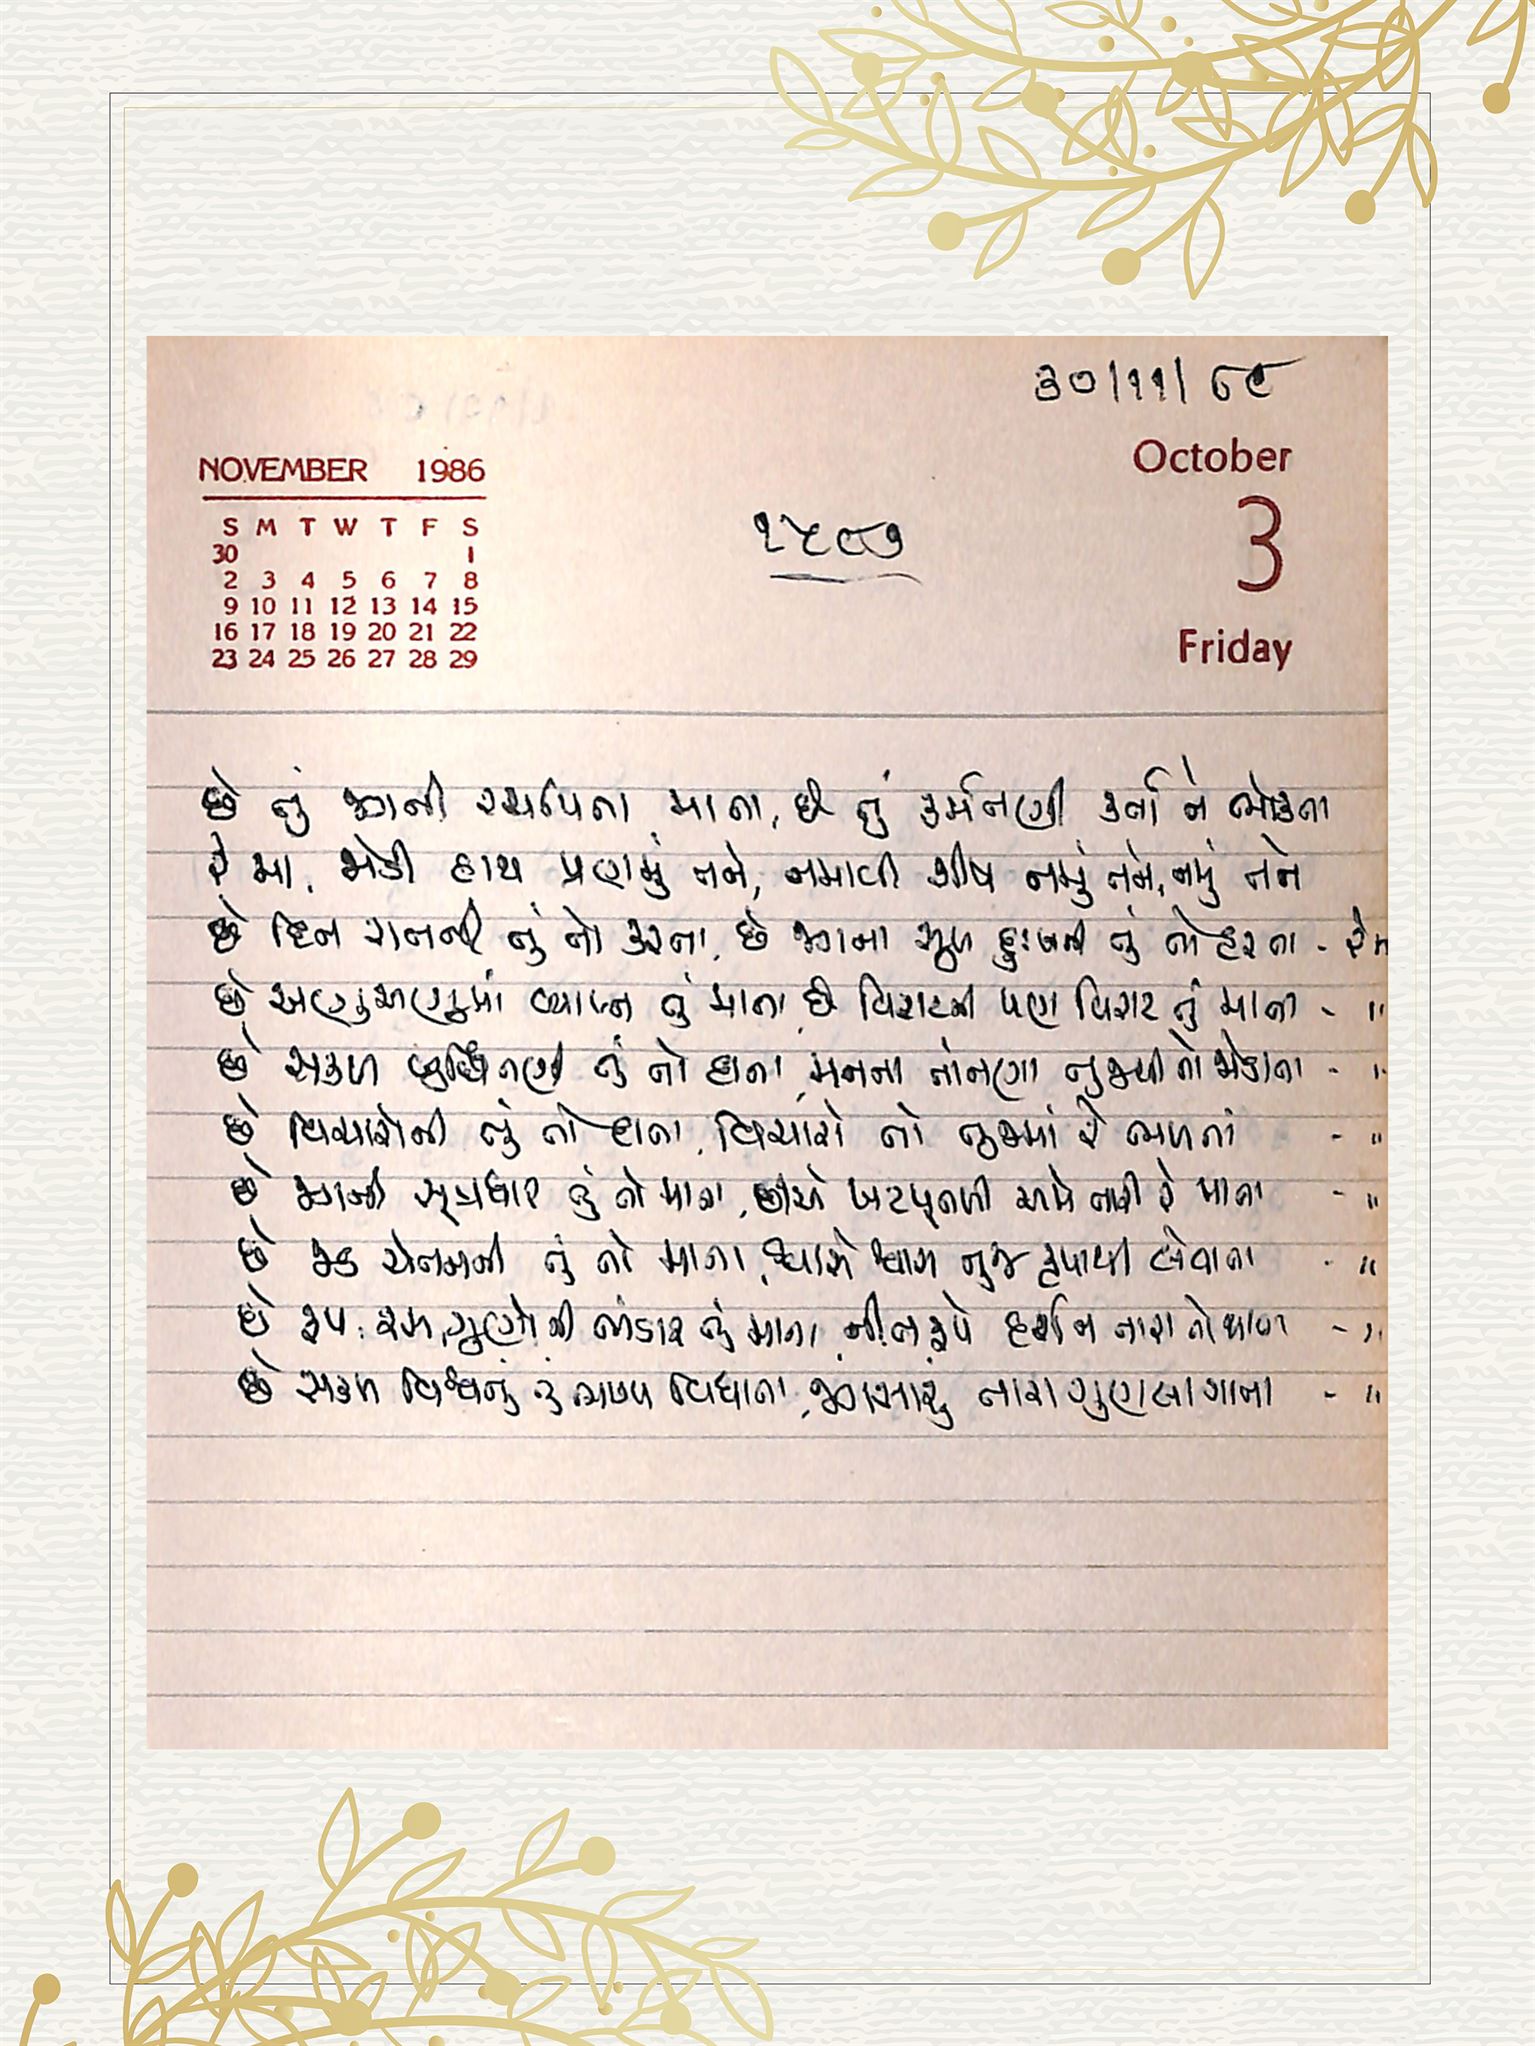 ૩૦/૧૧/૮૯
NOVEMBER 1986
October
S M T W T F S
30 1
2 3 4 5 6 7 8
9 10 11 12 13 14 15
16 17 18 19 20 21 22
23 24 25 26 27 28 29
3
Friday
છે તું જગની રચયિતા માતા, છે તું કર્મતણી કર્તા ને ભોક્તા
રે મા, જોડી હાથ પ્રણમું તને, નમાવી શીષ નમું તને, નમું તને
છે દિન રાતની તું તો કરતા, છે જગના સુખ દુઃખની તું તો હરતા - રે મ
છે અણુઅણુમાં વ્યાપ્ત તું માતા, છે વિરાટની પણ વિરાટ તું માતા - "
છે સકળ બુદ્ધિતણી તું તો દાતા, મનના તાંતણા તુજથી તો જોડાતા - "
છે વિચારોની તું તો દાતા, વિચારો તો તુજમાં રે ભળતાં - "
છે જગની સૂત્રધાર તું તો માતા, છીએ કઠપૂતળી અમે તારી રે માતા - "
છે જડ ચેતનની તું તો માતા, શ્વાસે શ્વાસ તુજ કૃપાથી લેવાતા - "
છે રૂપ, રસ, ગુણોની ભંડાર તું માતા, નીત રૂપે દર્શન તારા તો થાતા - "
છે સકળ વિશ્વનું તું ભાગ્ય વિધાતા, જગ સારું તારા ગુણલા ગાતા - "